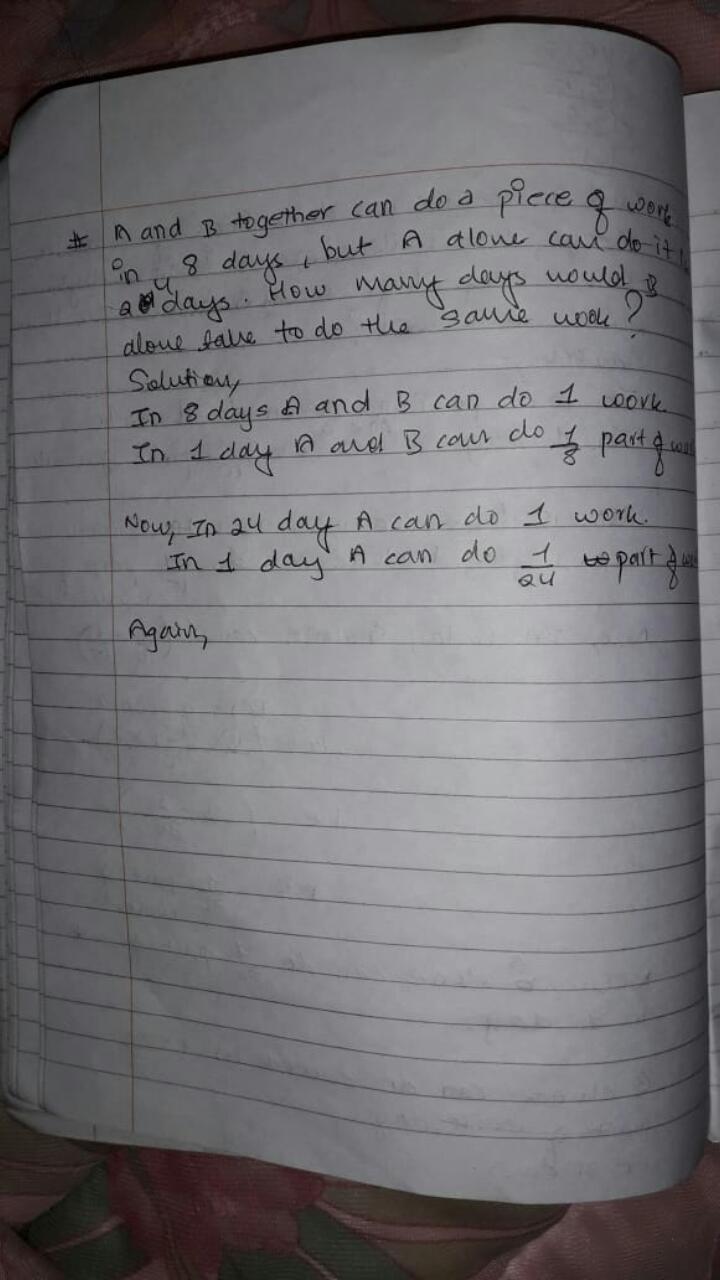 * A and B together can do a piece of work
in 8 days, but A alone can do it
24 days. How many days would B
alone take to do the same work?
Solution,
In 8 days A and B can do 1 work
In 1 day A and B can do 1/8 part of
Now, In 24 day A can do 1 work.
In 1 day A can do 1/24 part of
Again,